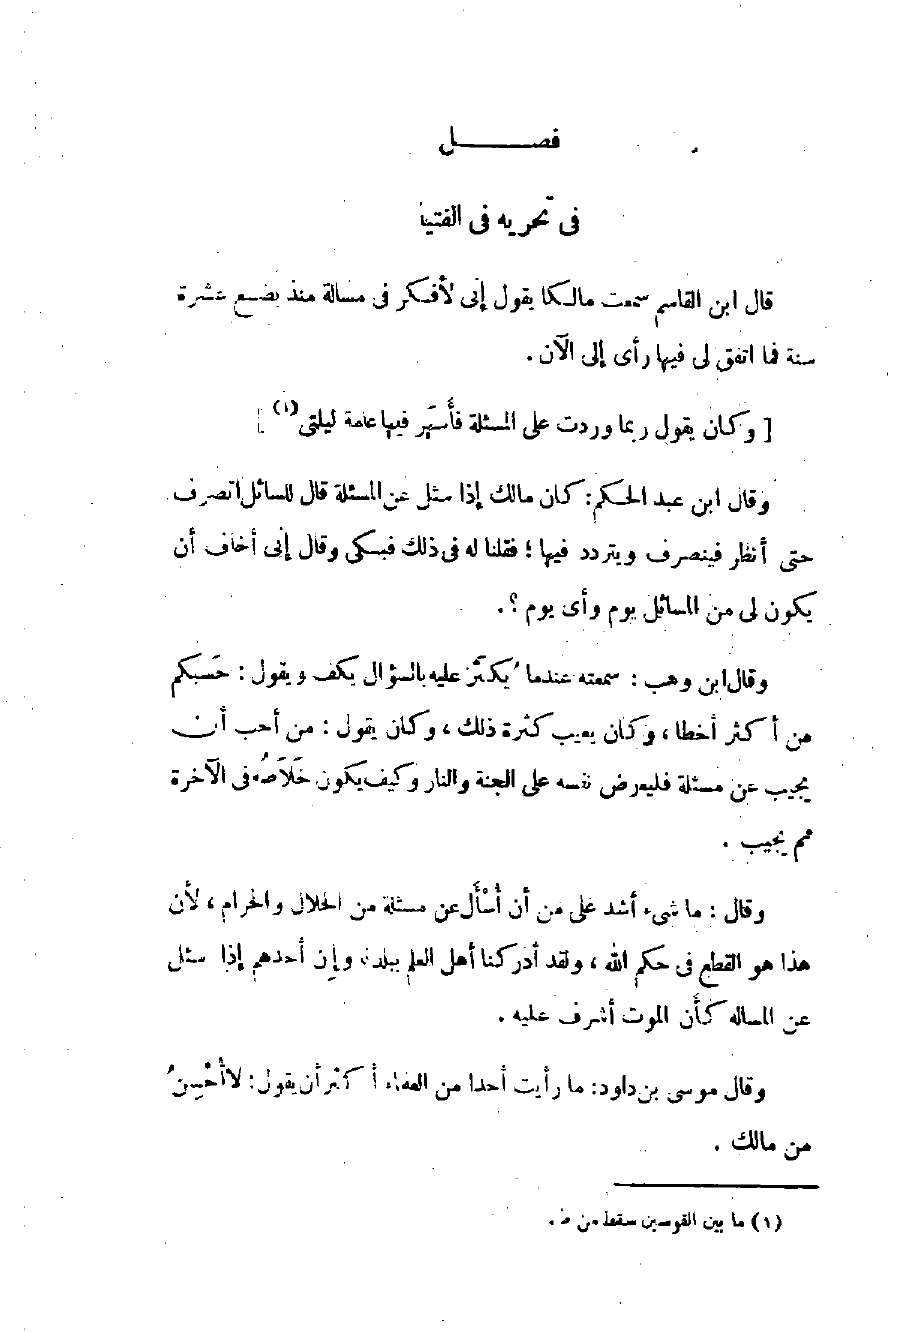 فصل
فى تحريه فى الفتيا
قال ابن القاسم سمعت مالكا يقول إنى لأفكر فى مسالة منذ بضع عشرة
سنة فما اتفق لى فيها رأى إلى الآن .
[ وكان يقول ربما وردت على المسئلة فأسهر فيها عامة ليلتى (١) ]
وقال ابن عبد الحكم : كان مالك إذا سئل عن المسئلة قال للسائل انصرف
حتى أنظر فينصرف ويتردد فيها ؛ فقلنا له فى ذلك فبكى وقال إنى أخاف أن
يكون لى من المسائل يوم وأى يوم ؟ .
وقال ابن وهب : سمعته عندما يُكثَر عليه بالسؤال يكف ويقول : حَسبكم
من أكثر أخطا ، وكان يعيب كثرة ذلك ، وكان يقول : من أحب أن
يجيب عن مسئلة فليعرض نفسه على الجنة والنار وكيف يكون خَلَاصُه فى الآخرة
ثم يجيب .
وقال : ما شىء أشد على من أن أُسْأَل عن مسئلة من الحلال والحرام ، لأن
هذا هو القطع فى حكم الله ، ولقد أدركنا أهل العلم ببلدنا وإن أحدهم إذا سئل
عن المساله كأن الموت أشرف عليه .
وقال موسى بن داود : ما رأيت أحدا من العلماء أكثر أن يقول : لا أُحْسِنُ
من مالك .
(١) ما بين القوسين سقط من